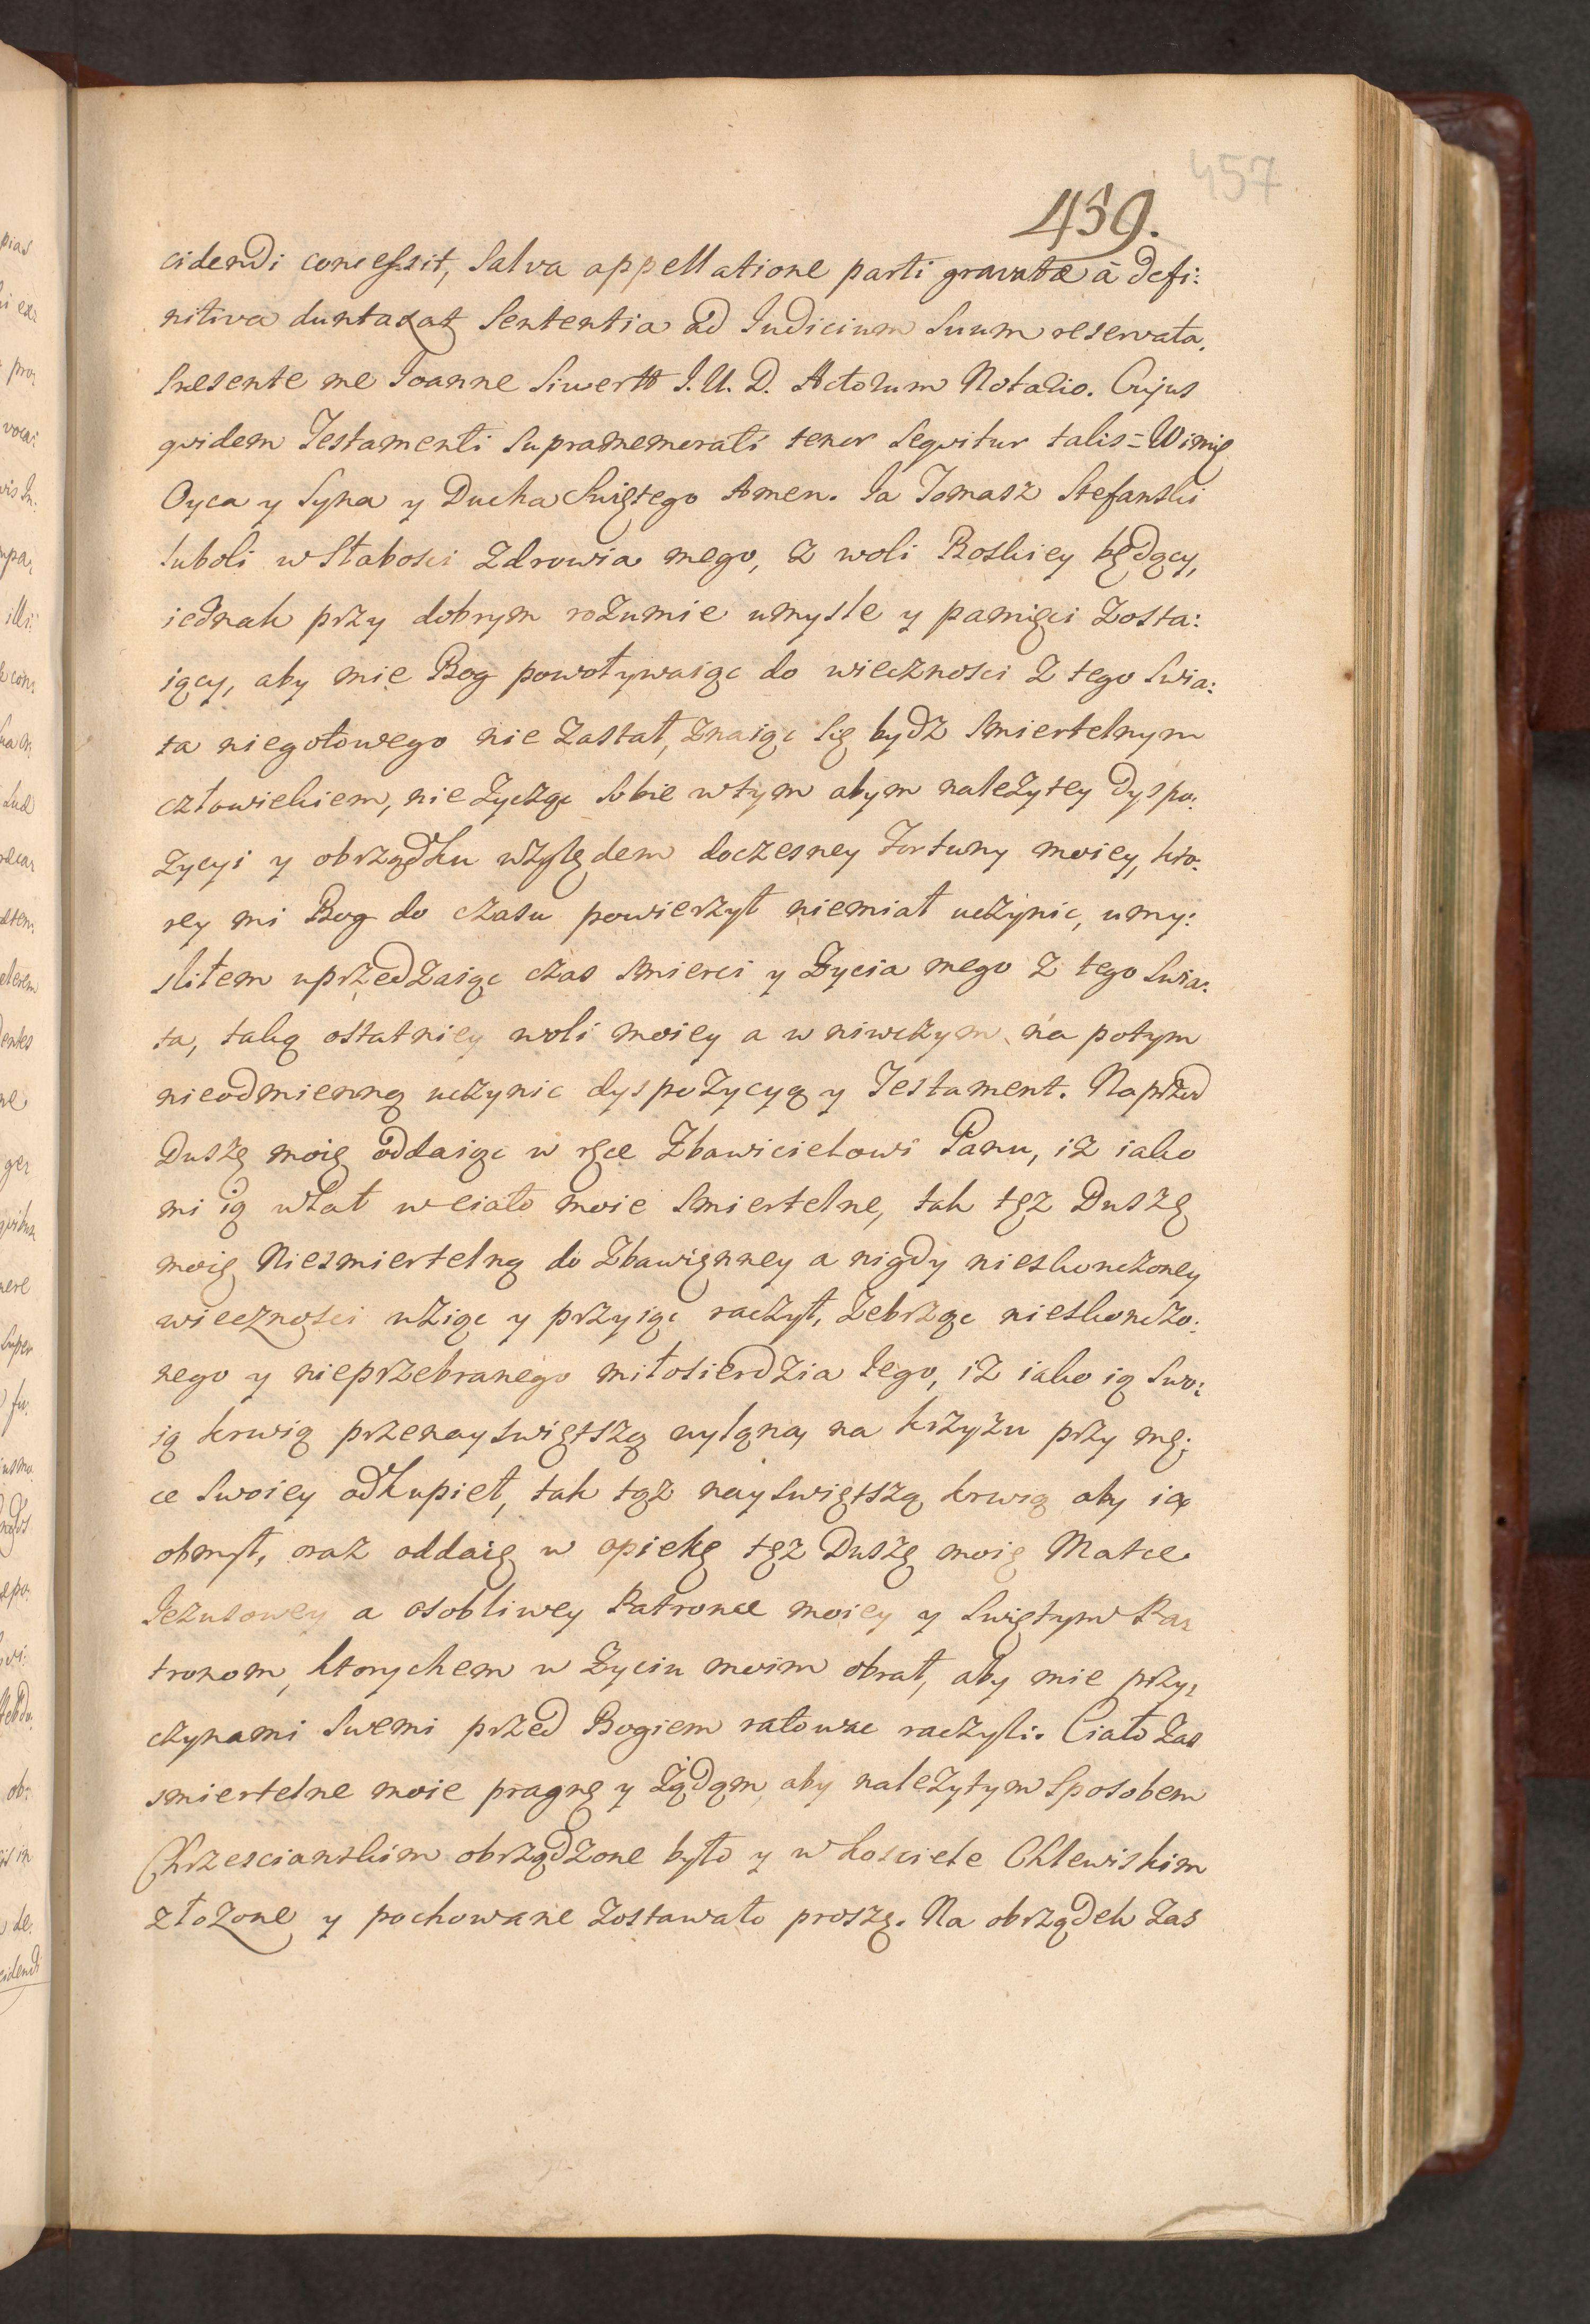 457
459.
cidendi concessit, Salva appellatione parti gravatæ à defi:
nitiva duntaxat Sententia ad Iudicium Suum reservata.
Præsente me Joanne Siwertt J. U. D. Actorum Notario. Cujus
qvidem Testamenti Supramemorati tenor Seqvitur talis = W imię
Oyca y Syna y Ducha Swiętego Amen. Ja Tomasz Stefanski
luboli w Słabosci Zdrowia mego, z woli Boskiey będący,
iednak przy dobrym rozumie umysle y pamięci Zosta:
iący, aby mie Bog powoływaiąc do wiecznosci z tego Swia:
ta niegotowego nie Zastał, Znaiąc Się bydz Smiertelnym
człowiekiem, nie Zycząc Sobie w tym abym nalezytey dyspo:
zycyi y obrządku względem doczesney Fortuny moiey, kto:
rey mi Bog do czasu powierzył niemiał uczynic, umy:
sliłem uprzedzaiąc czas Smierci y Zycia mego z tego Swia:
ta, taką ostatniey woli moiey a w niwczym na potym
nieodmienną uczynic dyspozycyą y Testament. Naprzod
Duszę moię oddaiąc w ręce Zbawicielowi Panu, iz iako
mi ią wlał w ciało moie Smiertelne, tak tęz Duszę
moię Niesmiertelną do Zbawięnney a nigdy nieskonczoney
wiecznosci wziąc y przyiąc raczył, Zebrząc nieskonczo:
nego y nieprzebranego miłosierdzia Jego, iz iako ią Swo:
ią krwią przenayswiętszą wylaną na krzyzu przy mę:
ce Swoiey odkupieł, tak tąz nayswiętszą krwią aby ią
obmył, oraz oddaię w opiekę tęz Duszę moię Matce
Jezusowey a osobliwey Patronce moiey y Swiętym Pa:
tronom, ktorychem w Zyciu moim obrał, aby mie przy:
czynami Swemi przed Bogiem ratowac raczyli. Ciało Zas
smiertelne moie pragnę y Ządam, aby nalezytym Sposobem
Chrzescianskim obrządzone było y w kosciele Chlewiskim
złozone y pochowane Zostawało proszę. Na obrządek Zas